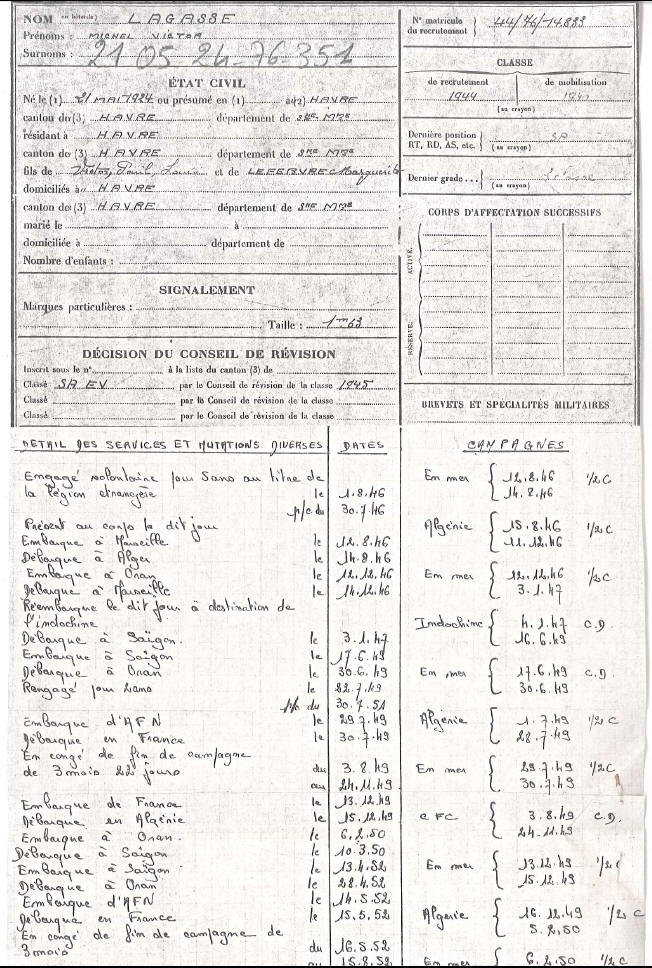 NOM (en lettres bâtards) LAGASSE
Prénoms : MICHEL VICTOR
Surnoms :
21 05 24-76-351
ÉTAT CIVIL
Né le (1) 21 MAI 1924 ou présumé en (1) à (2) HAVRE
canton de (3) HAVRE département de SNE MME
résidant à HAVRE
canton de (3) HAVRE département de SNE MME
fils de Victor, Paul, Louis et de LEFEBVRE Marguerite
domiciliés à HAVRE
canton de (3) HAVRE département de SNE MME
marié le à
domiciliée à département de
Nombre d'enfants :
SIGNALEMENT
Marques particulières :
Taille : 1m63
DÉCISION DU CONSEIL DE RÉVISION
Inscrit sous le n° à la liste du canton (3) de
Classé SA EV par le Conseil de révision de la classe 1945
Classé par le Conseil de révision de la classe
Classé par le Conseil de révision de la classe
N° matricule du recrutement 44/76/14.883
CLASSE
de recrutement de mobilisation
1944
(au crayon)
Dernière position RT, RD, AS, etc. (au crayon) SA
Dernier grade... (au crayon)
CORPS D'AFFECTATION SUCCESSIFS
ACTIVE.
RÉSERVE.
BREVETS ET SPÉCIALITÉS MILITAIRES
DETAIL DES SERVICES ET MUTATIONS DIVERSES DATES
Engagé volontaire pour 5ans au titre de
la légion etrangère le 1.8.46
p/c du 30.7.46
Présent au corps le dit jour
Embarque à Marseille le 12.8.46
Débarque à Alger le 14.8.46
Embarque à Oran le 12.12.46
Débarque à Marseille le 14.12.46
Réembarque le dit jour à destination de
l'indochine
Débarque à Saïgon. le 3.1.47
Embarque à Saïgon le 17.6.49
Débarque à Oran le 30.6.49
Rengagé pour 2ans le 22.7.49
p/c du 30.7.51
Embarque d'AFN le 29.7.49
Débarque en France le 30.7.49
En congé de fin de campagne
de 3 mois 22 jours du 3.8.49
au 24.11.49
Embarque de France le 13.12.49
Débarque en Algérie le 15.12.49
Embarque à Oran. le 6.2.50
Débarque à Saïgon le 10.3.50
Embarque à Saïgon le 13.4.52
Débarque à Oran le 28.4.52
Embarque d'AFN le 14.5.52
Débarque en France le 15.5.52
En congé de fin de campagne de
3 mois du 16.5.52
au 15.8.52
CAMPAGNES
En mer { 12.8.46 1/2 C
14.8.46
Algérie { 15.8.46 1/2 C
11.12.46
En mer { 12.12.46 1/2 C
3.1.47
Indochine { 4.1.47 C.D.
16.6.49
En mer { 17.6.49 C.D.
30.6.49
Algérie { 1.7.49 1/2 C
28.7.49
En mer { 29.7.49 1/2 C
30.7.49
C FC { 3.8.49 C.D.
24.11.49
En mer { 13.12.49 1/2 C
15.12.49
Algérie { 16.12.49 1/2 C
5.2.50
En mer { 6.2.50 1/2 C